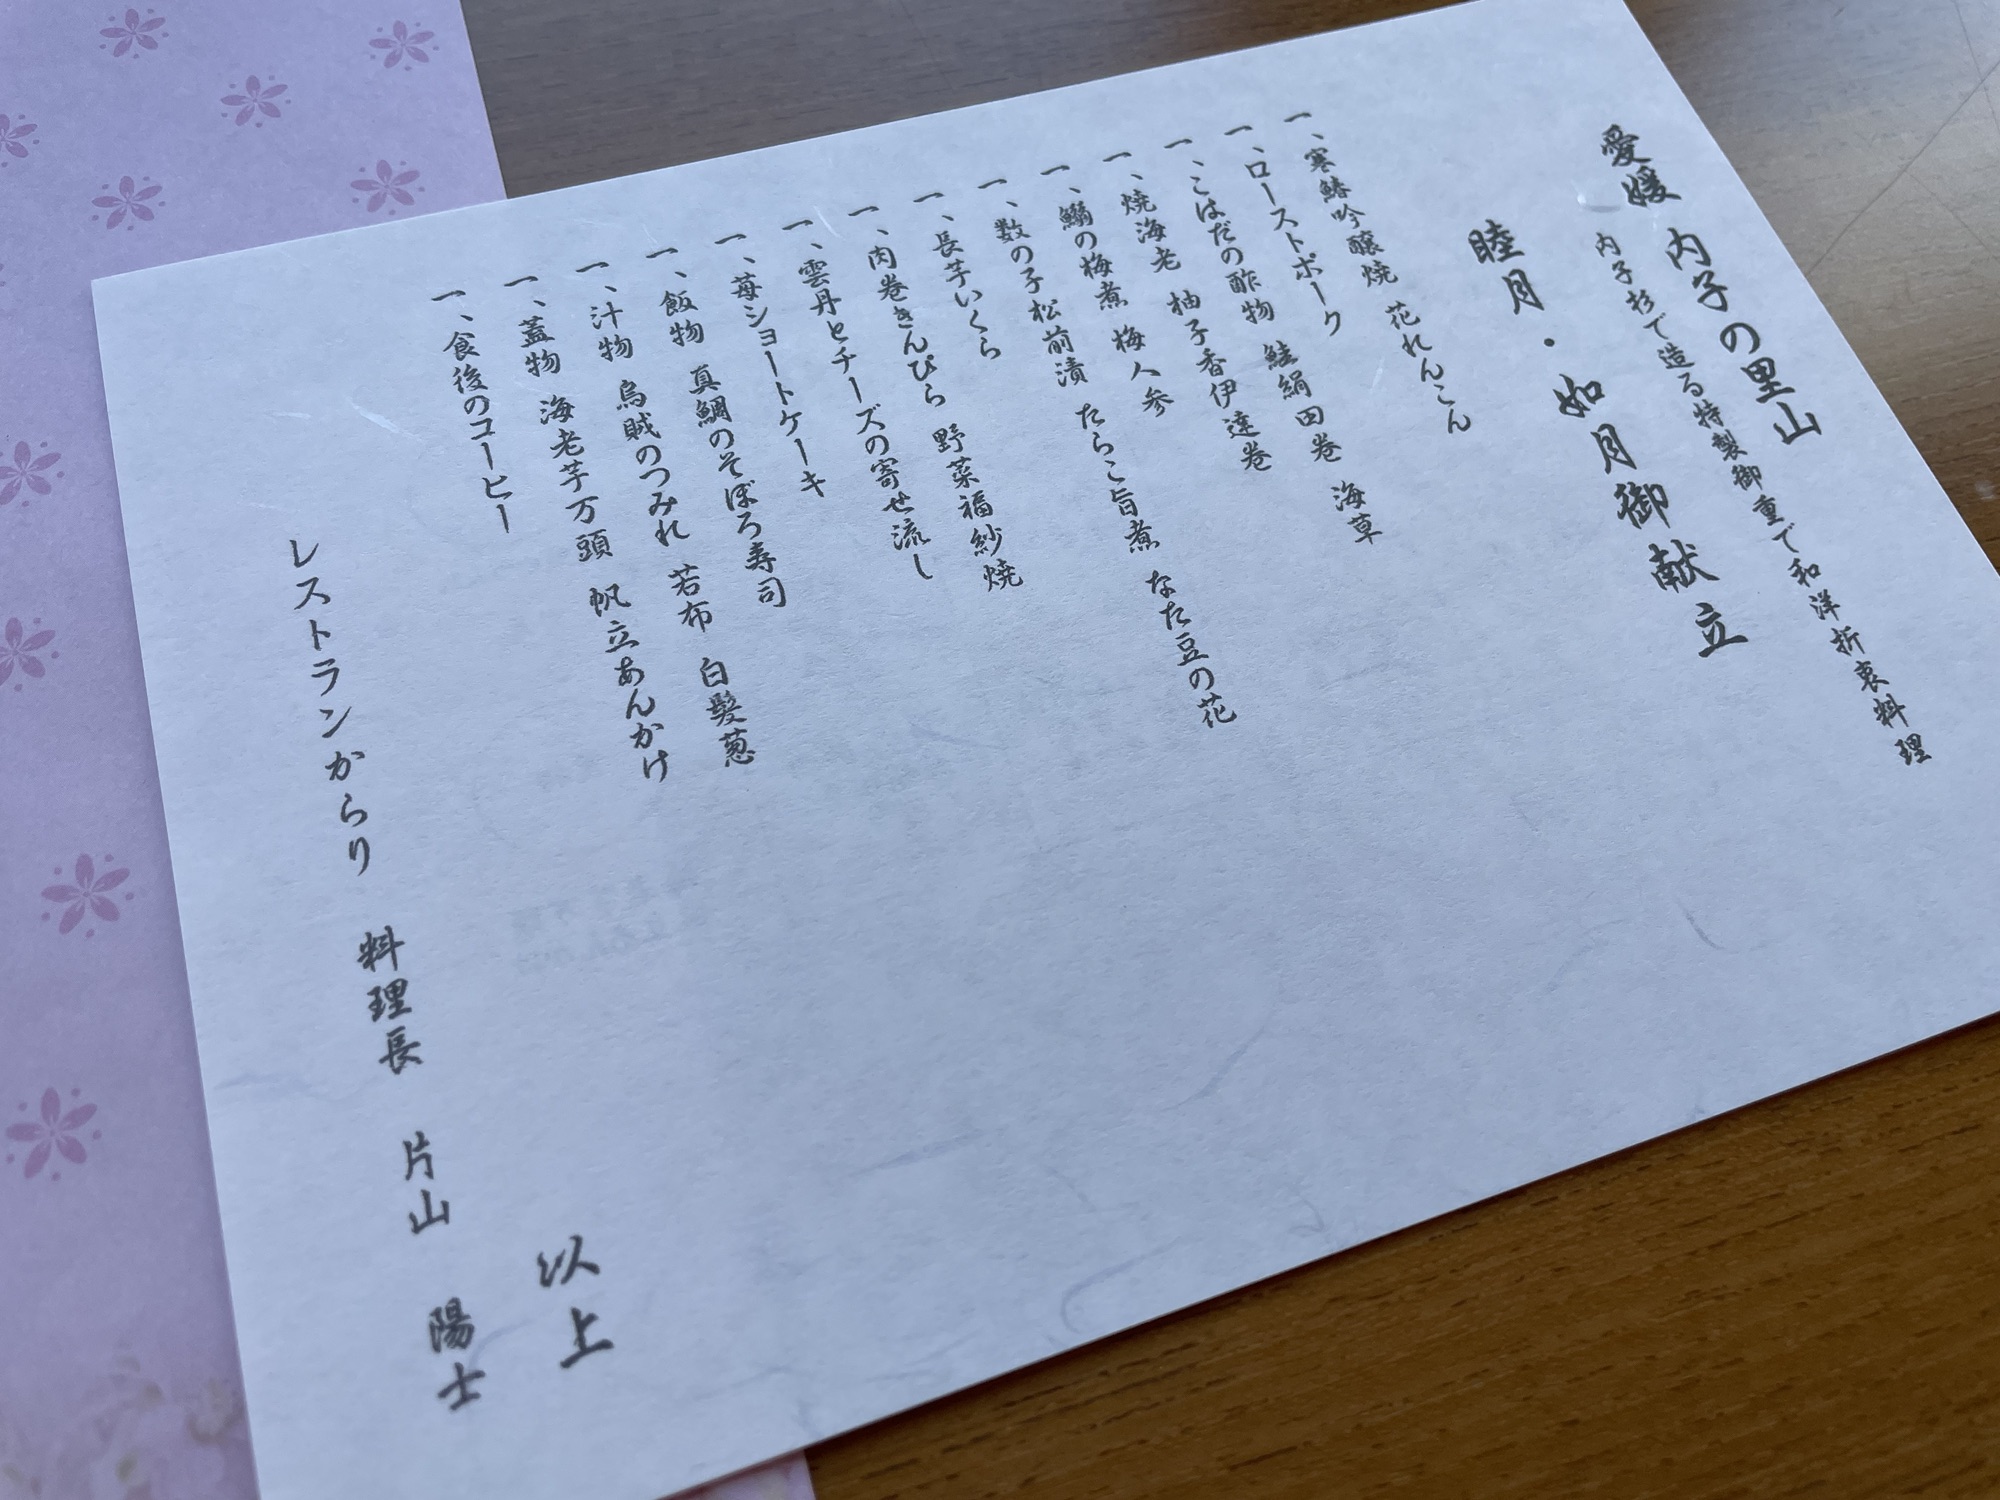 愛媛 内子の里山
内子杉で造る特製御重で和洋折衷料理
睦月・如月御献立
一、寒鰆吟醸焼 花れんこん
一、ローストポーク
一、こはだの酢物 鮭絹田巻 海草
一、焼海老 柚子香伊達巻
一、鰯の梅煮 梅人参
一、数の子松前漬 たらこ旨煮 なた豆の花
一、長芋いくら
一、肉巻きんぴら 野菜福紗焼
一、雲丹とチーズの寄せ流し
一、苺ショートケーキ
一、飯物 真鯛のそぼろ寿司
一、汁物 烏賊のつみれ 若布 白髪葱
一、蓋物 海老芋万頭 帆立あんかけ
一、食後のコーヒー
以上
レストランからり 料理長 片山 陽士